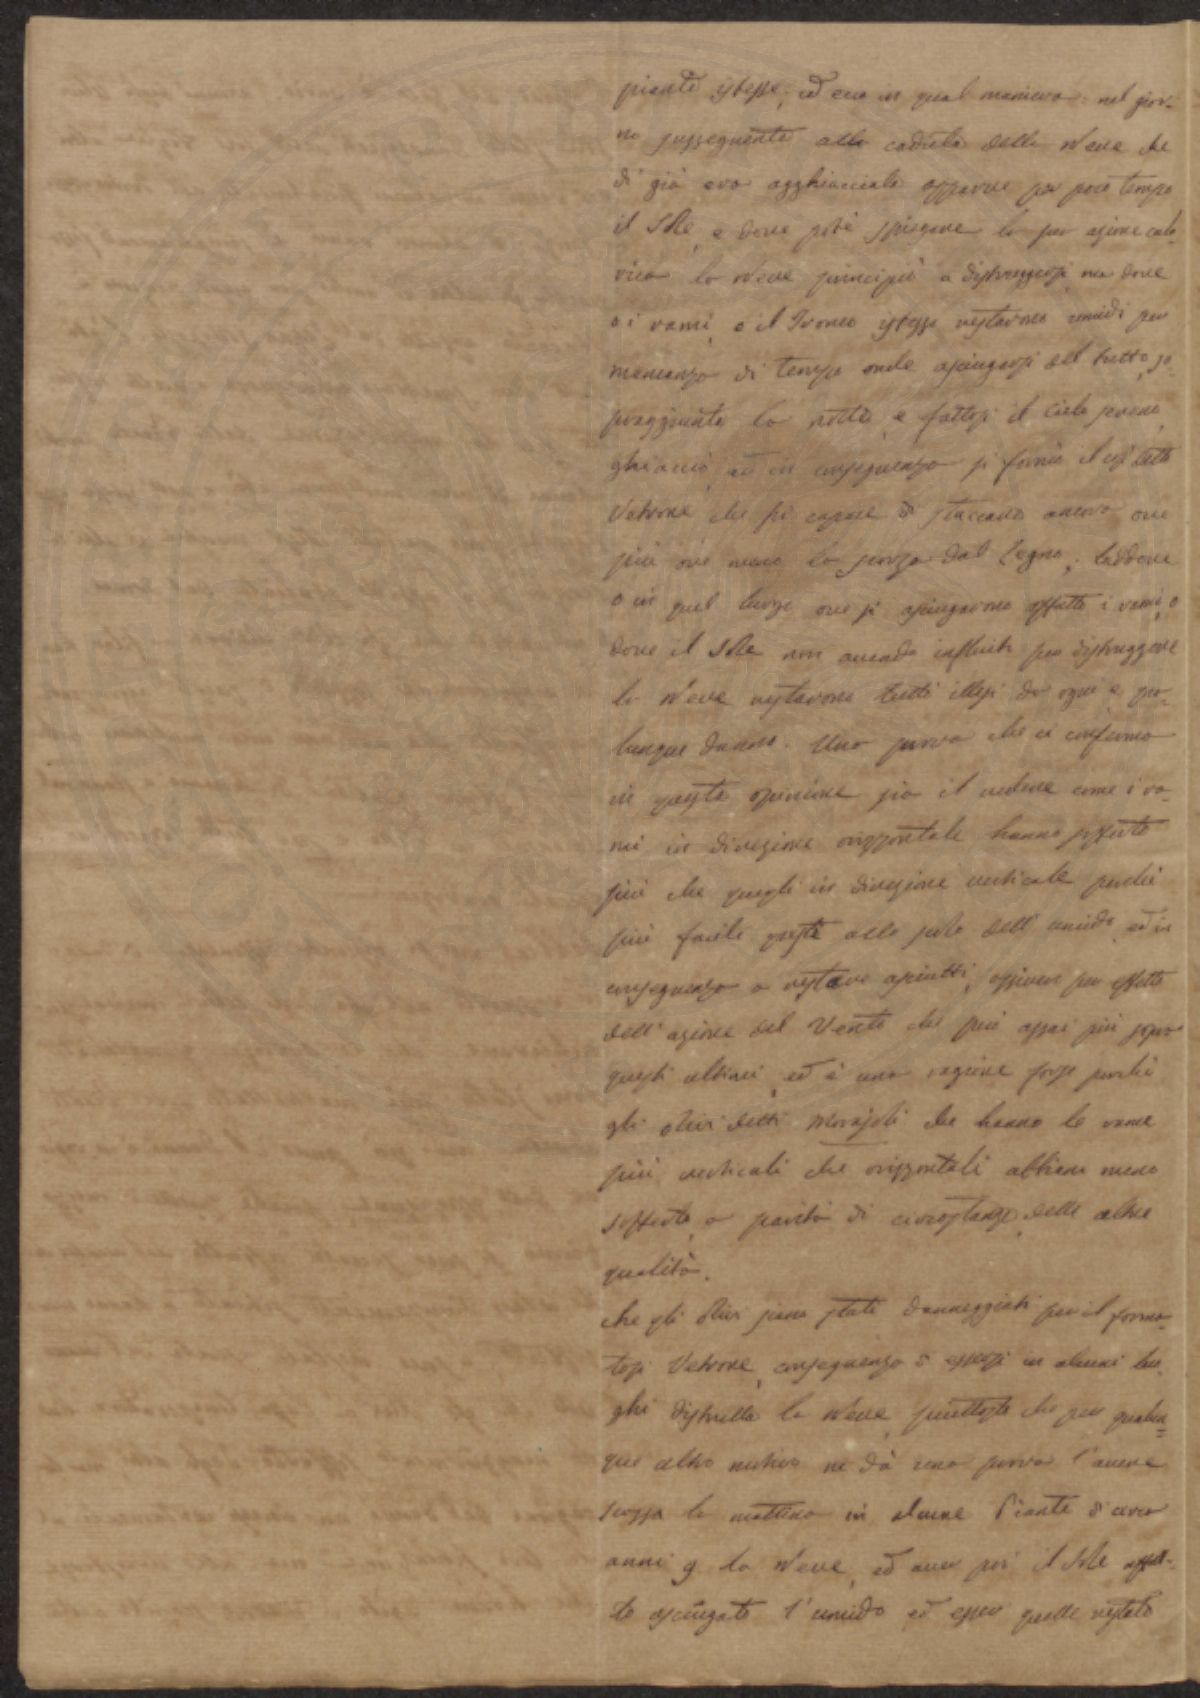 piante istesse, ed ecco in qual maniera: nel gior-
no susseguente alla caduta della Neve che
di già era agghiacciata apparve per poco tempo
il Sole, e dove potè spiegare la sua azione calo-
rica la Neve principiò a distruggersi, ma dove
o i rami, o il Tronco istesso restarono umidi per
mancanza di tempo onde asciugarsi del tutto, so-
praggiunta la notte, e fattosi il Cielo sereno,
ghiacciò, ed in conseguenza si formò il così detto
Vetrone che fù capace di staccare ancora ove
più ove meno la scorza dal Legno; laddove
o in quel luogo ove si asciugarono affatto i rami, o
dove il Sole non avendo influito per distruggere
la Neve restarono tutti illesi da ogni e qua-
lunque danno. Una prova che ci conferma
in questa opinione sia il vedere come i ra-
mi in direzione orizzontale hanno sofferto
più che quegli in direzione verticale perchè
più facile questi allo scolo dell'umido, ed in
conseguenza a restare asciutti, ossivero per effetto
dell'azione del Vento che può assai più sopra
questi ultimi, ed è una ragione forse perchè
gli olivi detti Morajoli che hanno le rame
più verticali che orizzontali abbiano meno
sofferto, a parità di circostanze, delle altre
qualità.
Che gli Olivi siano stati danneggiati per il forma-
tosi Vetrone, conseguenza di essersi in alcuni luo-
ghi distrutta la Neve, piuttosto che per qualun-
que altro motivo ne dà una prova l'avere
scossa la mattina in alcune Piante di circa
anni 9 la Neve, ed aver poi il Sole affat-
to asciugato l'umido ed esser quelle restate